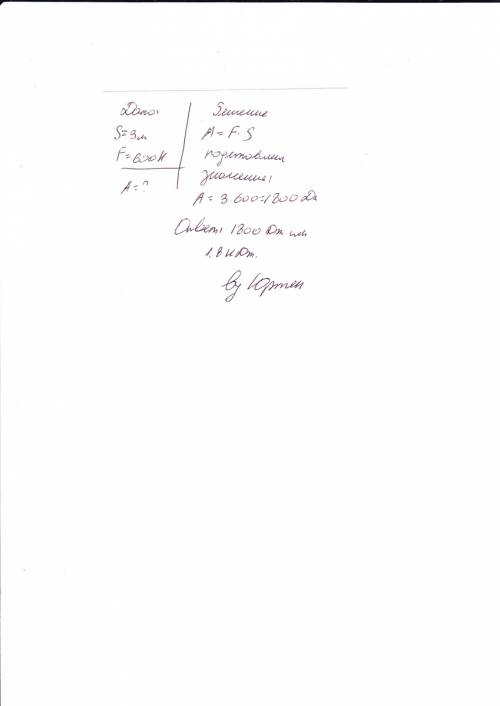 Дано:
S=3м
F=600Н
A=?
Решение
A=F·S
подставим
значение:
A=3 600=1800 Дж
Ответ: 1800 Дж или
1,8 кДж.
by Юртен